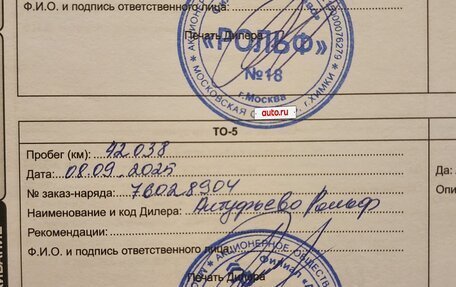 Ф.И.О. и подпись ответственного лица:
Печать Дилера
АКЦИОНЕРНОЕ
000076279
«РОЛЬФ»
№18
г.Москва
МОСКОВСКАЯ г.ХИМКИ
auto.ru
ТО-5
Пробег (км): 42038
Дата: 08.09.2025
№ заказ-наряда: 76028904
Наименование и код Дилера: Алтуфьево Рольф
Рекомендации:
Ф.И.О. и подпись ответственного лица:
Печать Дилера
АКЦИОНЕРНОЕ ОБЩЕСТВО
Филиал
Да: